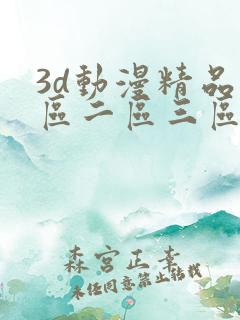 3d動漫精品
區二區三區
森宮正幸
未任同意禁止转载